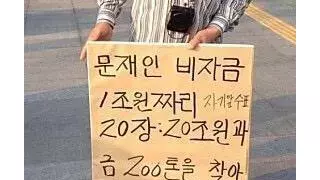 문재인 비자금
1조원짜리 자기앞수표
20장:20조원과
금 200톤을 찾아